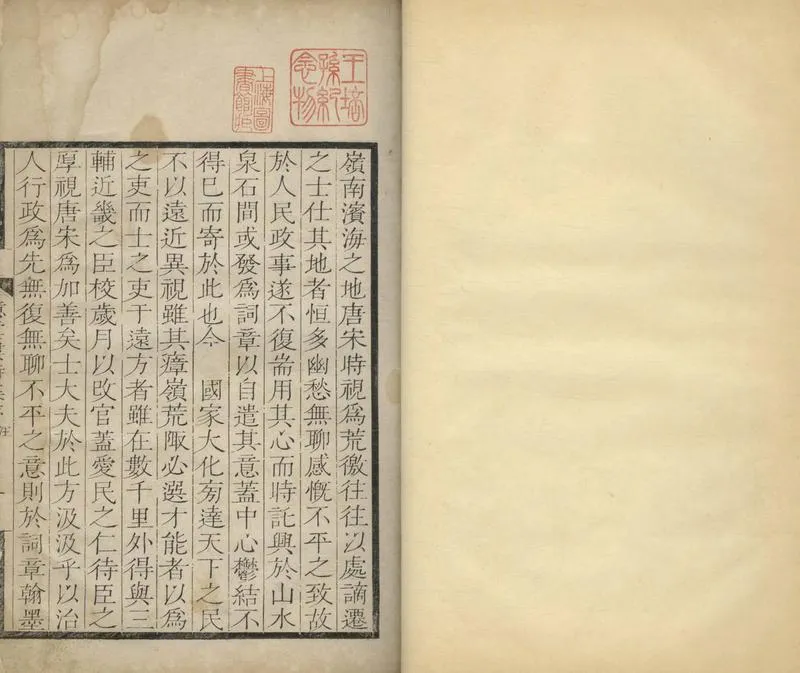 王培
孫紀
念物
上海圖
書館藏
嶺南濱海之地唐宋時視爲荒徼往往以處謫遷
之士仕其地者恒多幽愁無聊感慨不平之致故
於人民政事遂不復耑用其心而時託興於山水
泉石間或發爲詞章以自遣其意蓋中心鬱結不
得已而寄於此也今 國家大化旁達天下之民
不以遠近異視雖其瘴嶺荒陬必選才能者以爲
之吏而士之吏于遠方者雖在數千里外得與三
輔近畿之臣校歲月以改官蓋愛民之仁待臣之
厚視唐宋爲加善矣士大夫於此方汲汲乎以治
人行政爲先無復無聊不平之意則於詞章翰墨